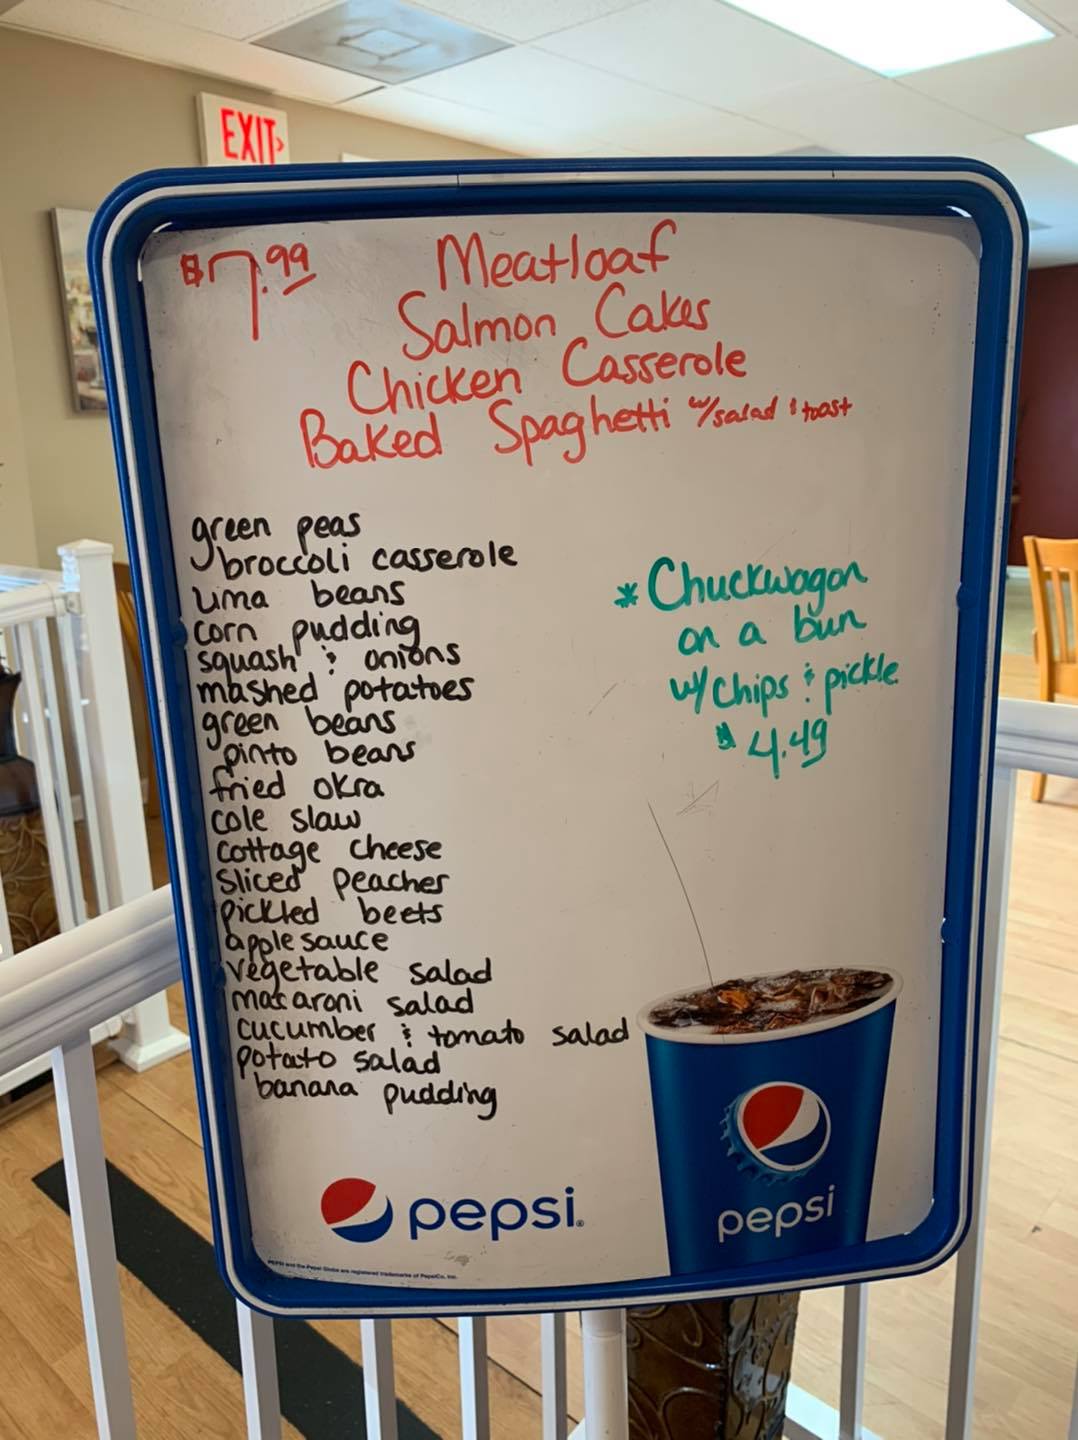 EXIT>
$7.99
Meatloaf
Salmon Cakes
Chicken Casserole
Baked Spaghetti w/salad & toast
green peas
broccoli casserole
Lima beans
corn pudding
squash & onions
mashed potatoes
green beans
pinto beans
fried okra
cole slaw
cottage cheese
sliced peaches
pickled beets
applesauce
vegetable salad
macaroni salad
cucumber & tomato salad
potato salad
banana pudding
* Chuckwagon
on a bun
w/ chips & pickle
$4.49
pepsi
pepsi.®
PEPSI and the Pepsi Globe are registered trademarks of PepsiCo, Inc.